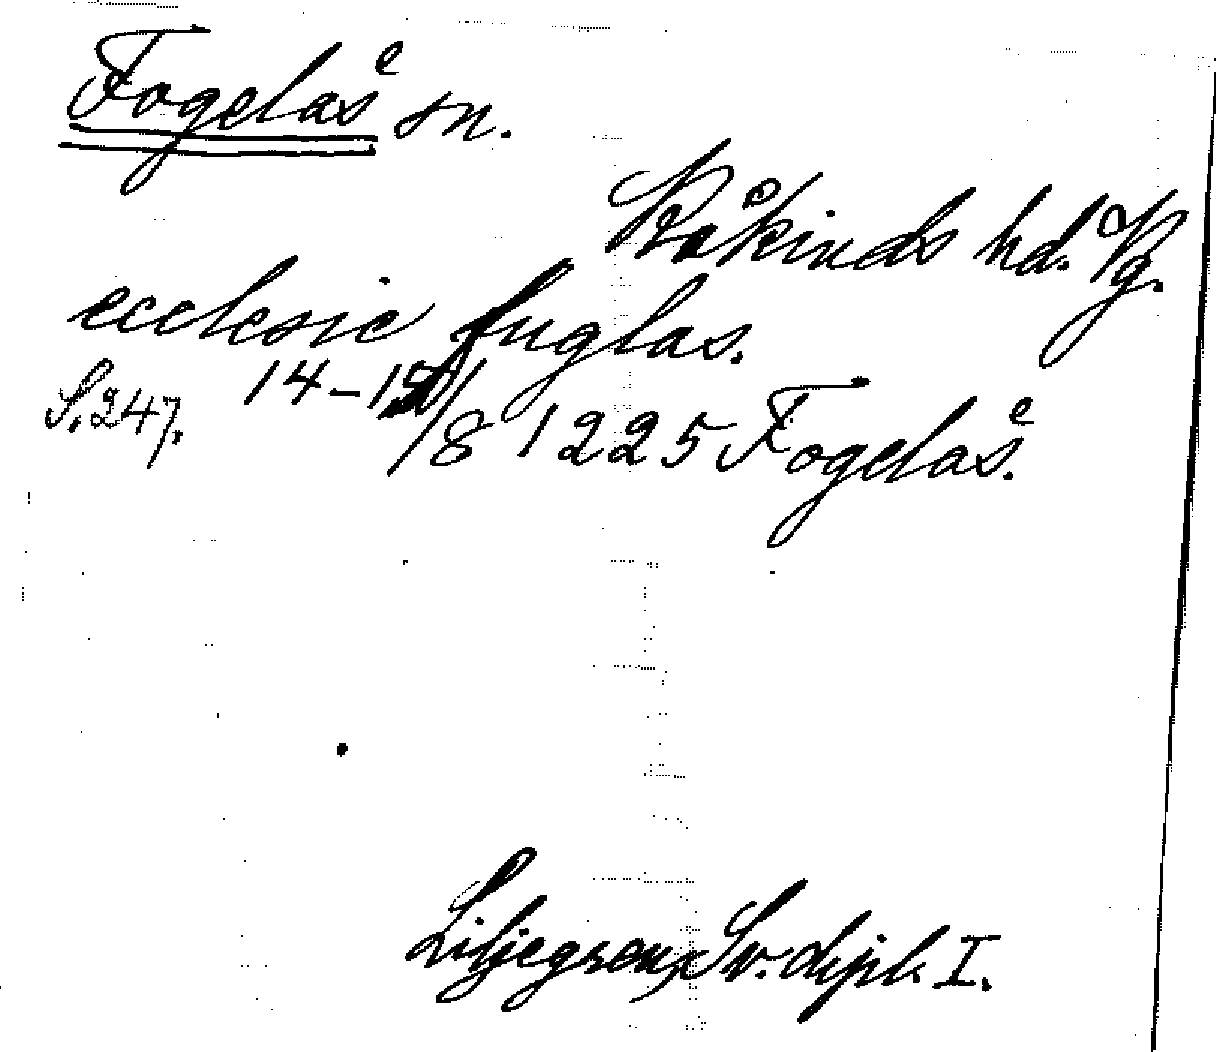 Fogelås sn.
Kåkinds hd. Vg.
ecclesie fuglas.
S. 247. 14-15/8 1225 Fogelås.
Liljegren, Sv. dipl. I.